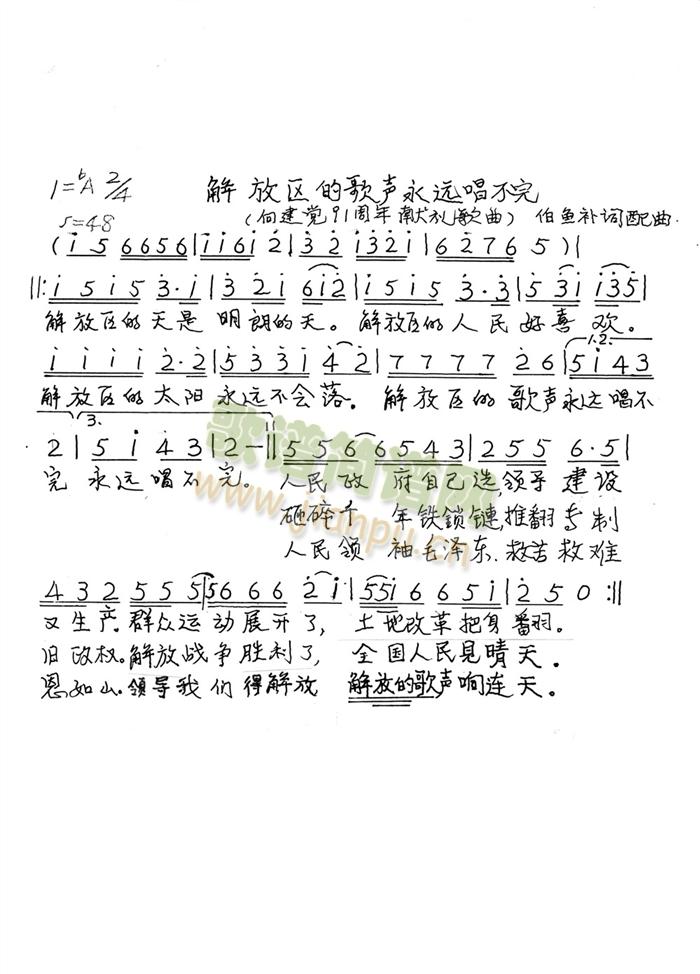 解放区的歌声永远唱不完
1=ᵇA 2/4
♩=48
(向建党91周年献礼歌曲) 伯鱼补词配曲
(i 5 6656|i i6i 2|3 2 i32i|62765)|
‖:i5i5 3·i|32i 6i2|i5i5 3·3|53i i35|
解放区的天是明朗的天。解放区的人民好喜欢。
1.2.
iiii 2·2|533i 42|7777 26|5i43
解放区的太阳永远不会落。解放区的歌声永远唱不
3.
2|5i 43|2-‖556 6543|255 6·5|
完 永远唱不完。人民政府自己选,领导建设
砸碎千年铁鎖鏈,推翻专制
人民领袖毛泽东.救苦救难
432 555|5666 2i|55i 665i|250:‖
又生产.群众运动展开了,土地改革把身翻。
旧政权。解放战争胜利了,全国人民見晴天.
恩如山.领导我们得解放 解放的歌声响连天。
歌谱简谱网
www.jianpu.cn